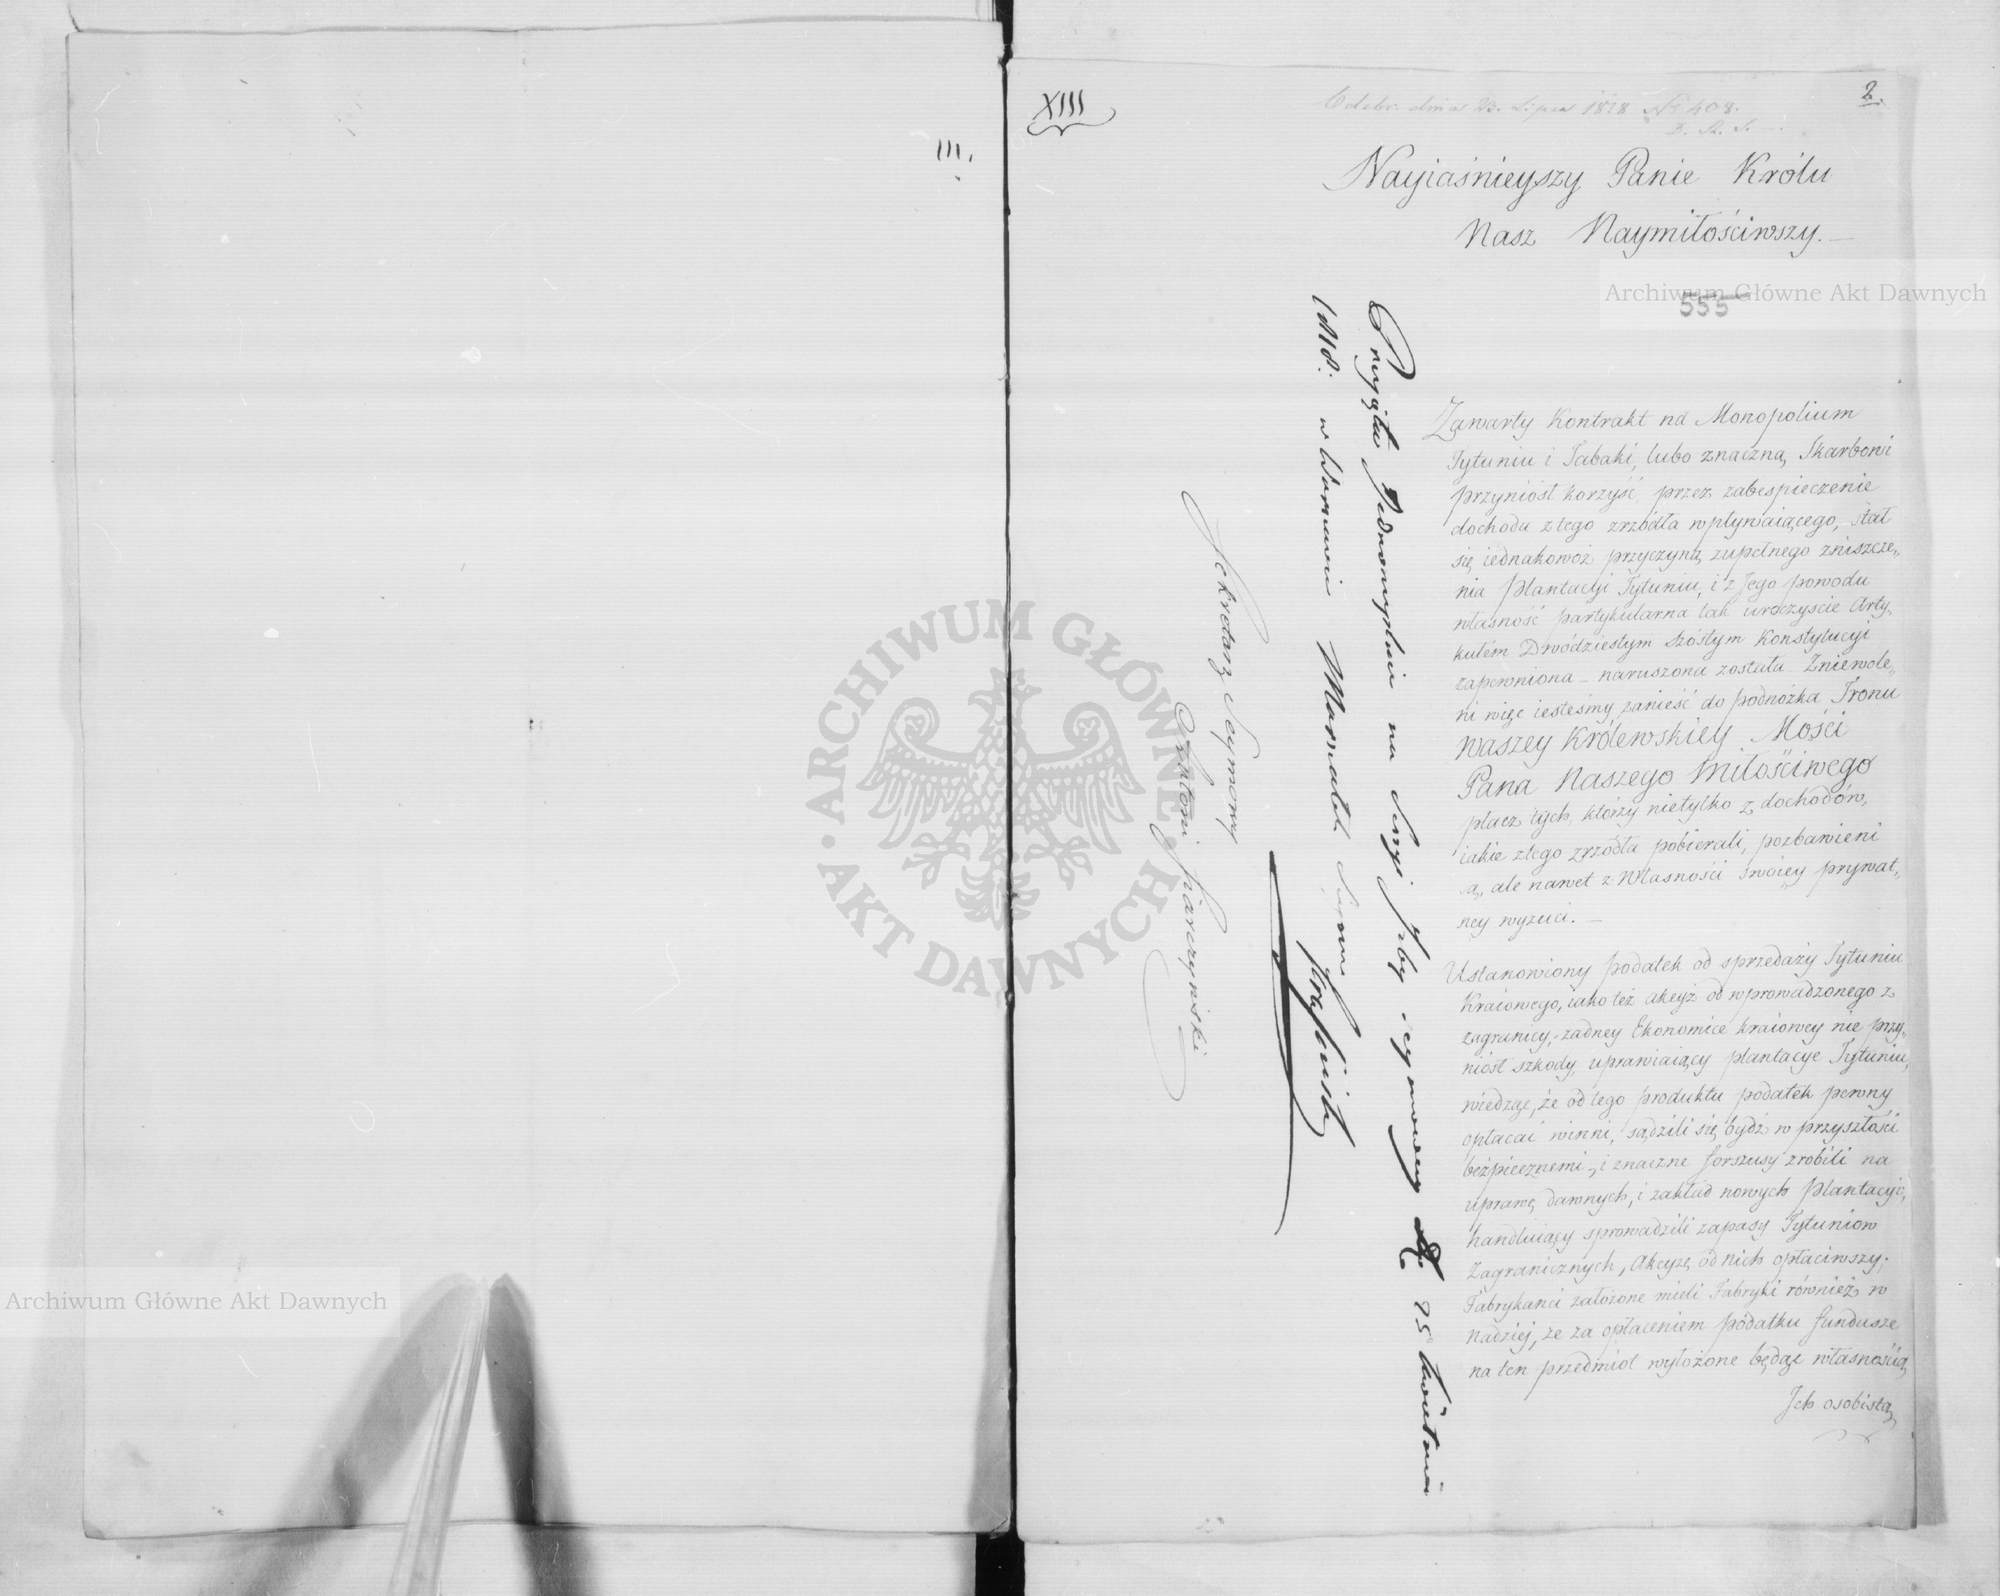 III.
XIII
Odebr. dnia 23. Lipca 1818 Nr 408.
2.
Nayiaśnieyszy Panie Królu
Nasz Naymiłościwszy. —
555
Zawarty Kontrakt na Monopolium
Tytuniu i Tabaki, lubo znaczną Skarbowi
przyniósł korzyść przez zabespieczenie
dochodu z tego zrzódła wpływaiącego, stał
się iednakowoż przyczyną zupełnego zniszcze„
nia Plantacyi Tytuniu, i z Jego powodu
własność partykularna tak uroczyście Arty„
kułem Dwódziestym szóstym Konstytucyi
zapewniona – naruszona została. Zniewole„
ni więc iesteśmy zanieść do podnóżka Tronu
Waszey Królewskiey Mości
Pana Naszego Miłościwego
płacz tych, którzy nietylko z dochodów,
iakie z tego zrzódła pobierali, pozbawieni
są, ale nawet z Własności swóiey prywat„
ney wyzuci. —
Ustanowiony podatek od sprzedaży Tytuniu
Kraiowego, iako też akcyż od wprowadzonego z
zagranicy, żadney Ekonomice kraiowey nie przy„
niósł szkody, uprawiaiący plantacye Tytuniu,
wiedząc, że od tego produktu podatek pewny
opłacać winni, sądzili się bydź w przyszłości
beźpiecznemi, i znaczne forszusy zrobili na
uprawę dawnych, i zakład nowych Plantacyi,
handluiący sprowadzili zapasy Tytuniow
Zagranicznych, Akcyzę od nich opłaciwszy.
Fabrykanci założone mieli Fabryki również w
nadziej, że za opłaceniem podatku fundusze
na ten przedmiot wyłożone będąc własnością
Jch osobistą
Przyięta Jednomyślnie na Sessyi Izby Seymowey 25 Kwietnia
1818. w Warszawie Marszałek Seymowy Krasiński
Sekretarz Seymowy
Antoni Siarczyński
Archiwum Główne Akt Dawnych
Archiwum Główne Akt Dawnych
ARCHIWUM GŁÓWNE • AKT DAWNYCH •